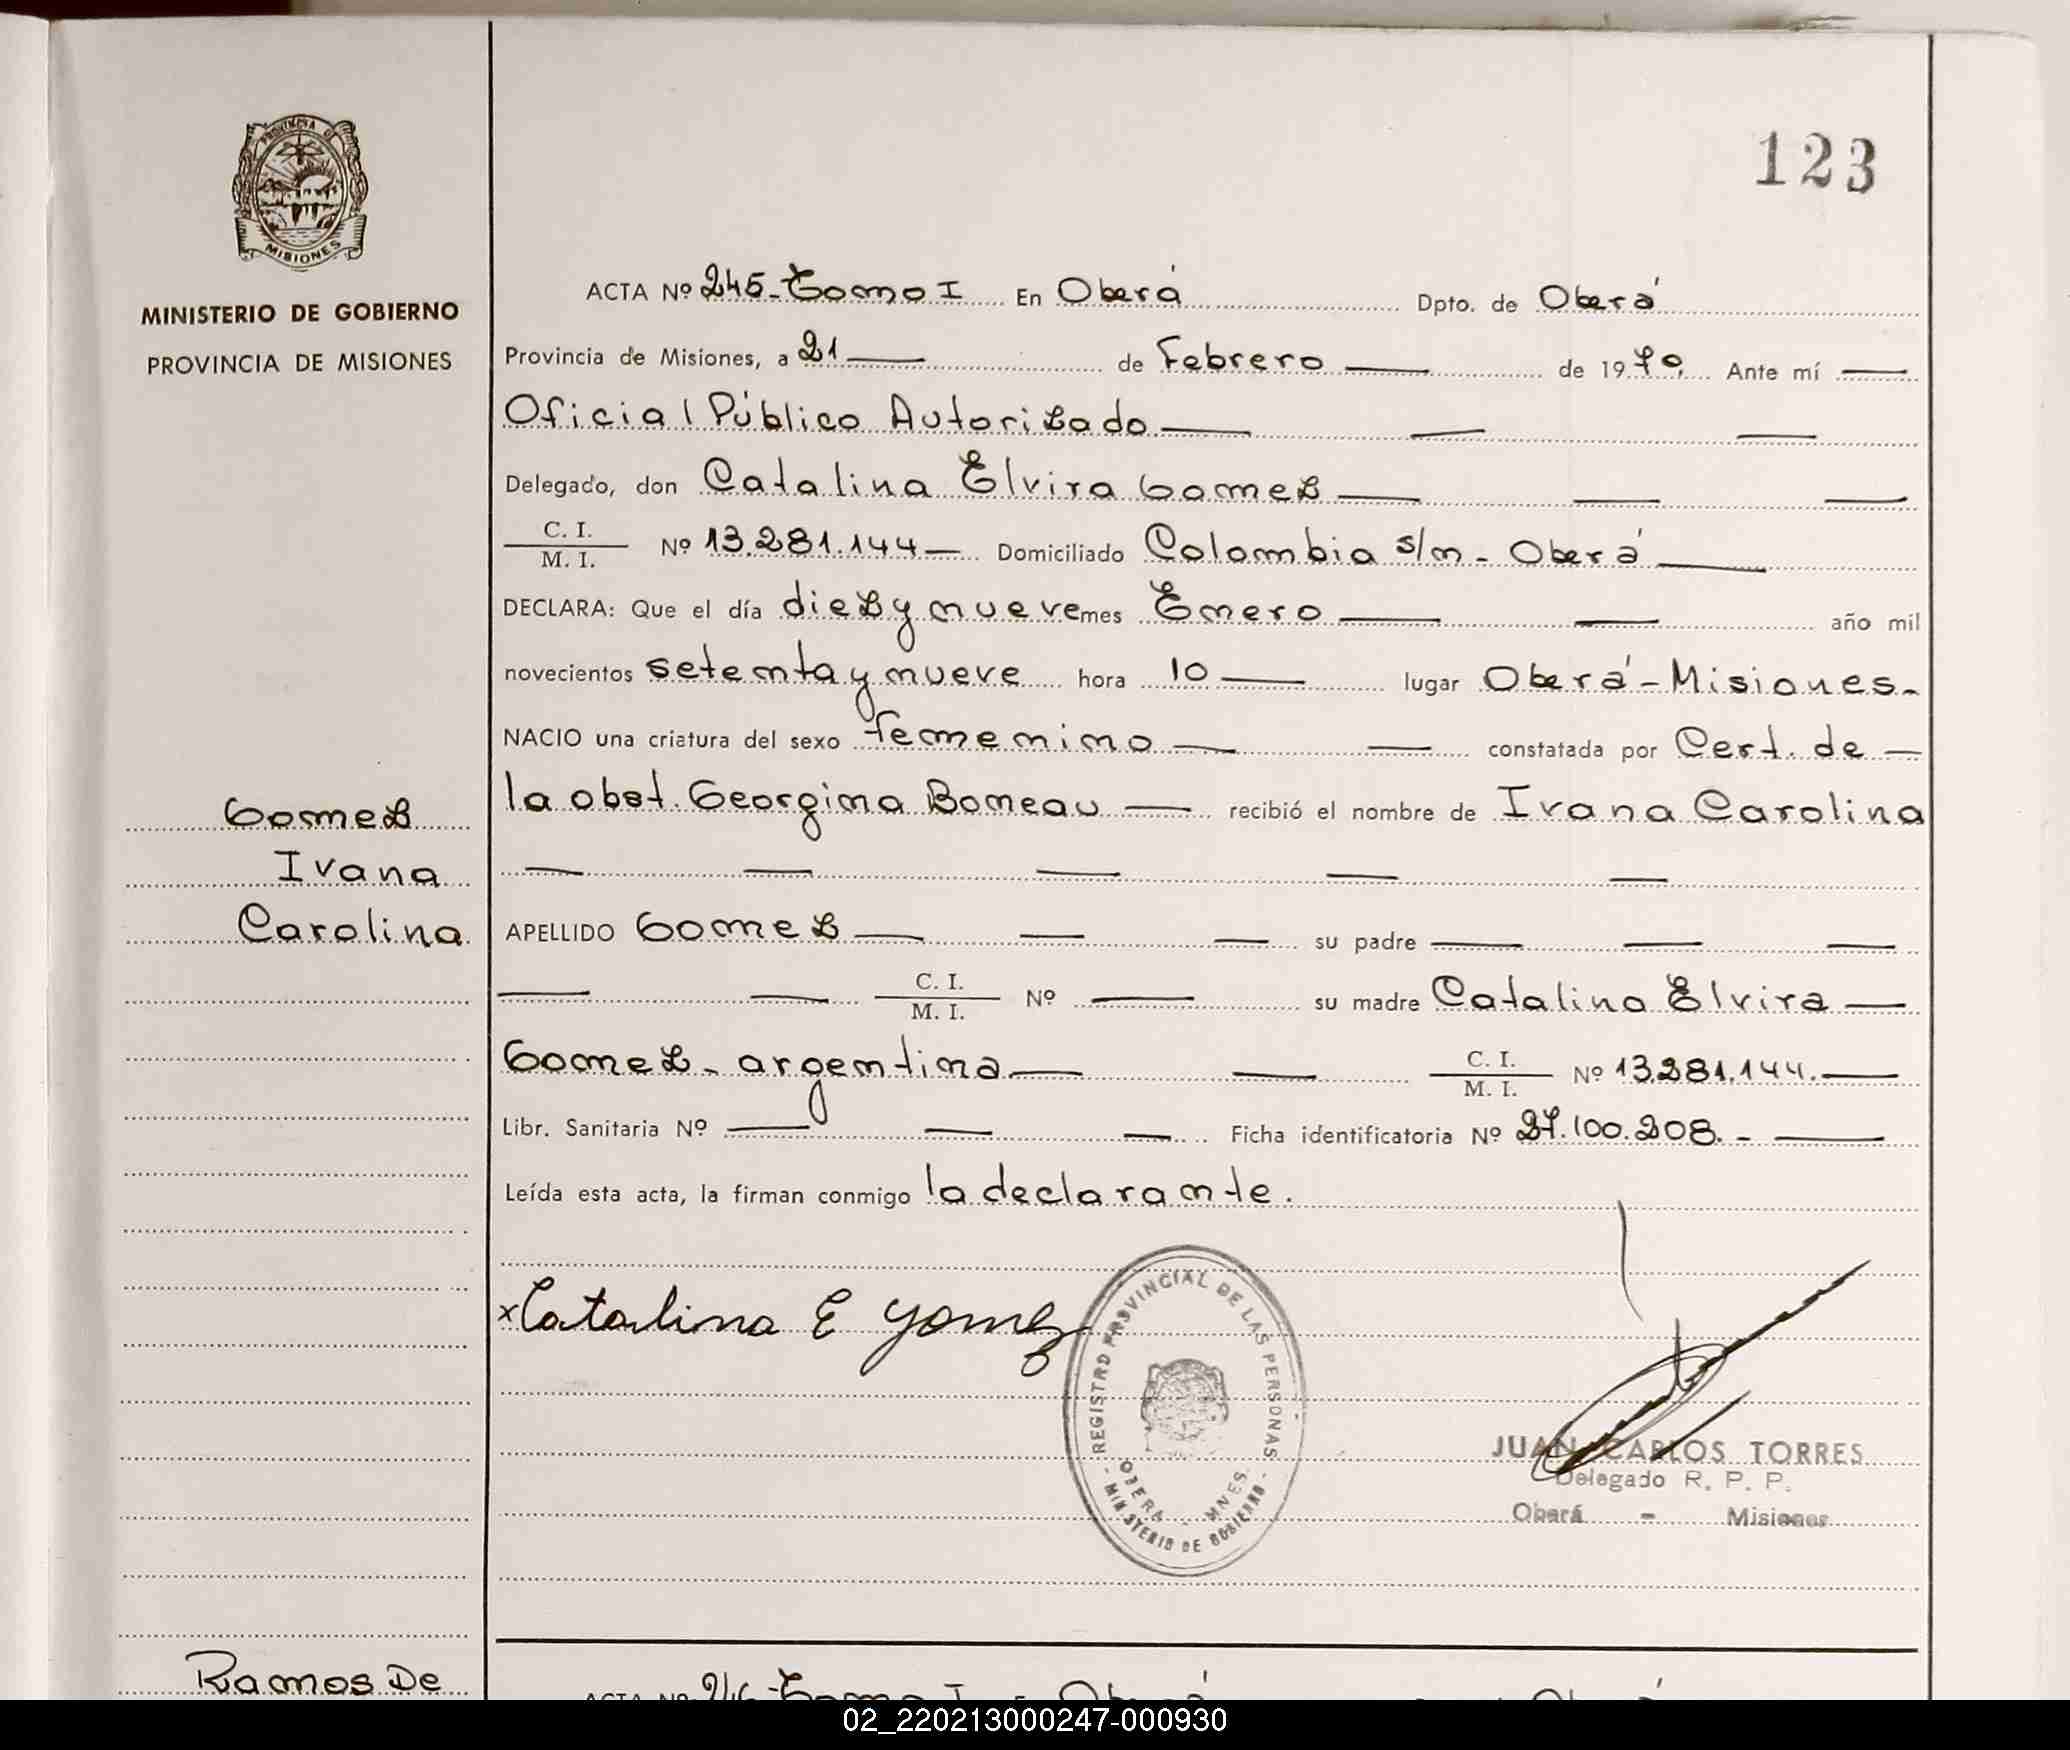 123
PROVINCIA D
MISIONES
MINISTERIO DE GOBIERNO
PROVINCIA DE MISIONES
ACTA Nº 245-Tomo I En Oberá Dpto. de Oberá
Provincia de Misiones, a 21 de Febrero de 1979. Ante mí
Oficial Público Autorizado
Delegado, don Catalina Elvira Gomez
C. I.
M. I. Nº 13.281.144 Domiciliado Colombia s/n - Oberá
DECLARA: Que el día diez y nueve mes Enero año mil
novecientos setenta y nueve hora 10 lugar Oberá - Misiones.
NACIO una criatura del sexo femenino constatada por Cert. de
la obst. Georgina Boneau recibió el nombre de Ivana Carolina
Gomez
Ivana
Carolina
APELLIDO Gomez su padre
C. I.
M. I. Nº su madre Catalina Elvira
Gomez - argentina C. I.
M. I. Nº 13.281.144.
Libr. Sanitaria Nº Ficha identificatoria Nº 27.100.208. -
Leída esta acta, la firman conmigo la declarante.
x Catalina E Gomez
REGISTRO PROVINCIAL DE LAS PERSONAS
OBERA - MNES.
- MINISTERIO DE GOBIERNO -
JUAN CARLOS TORRES
Delegado R. P. P.
Oberá - Misiones
Ramos De
ACTA Nº 246-Tomo I En Oberá Oberá
02_220213000247-000930